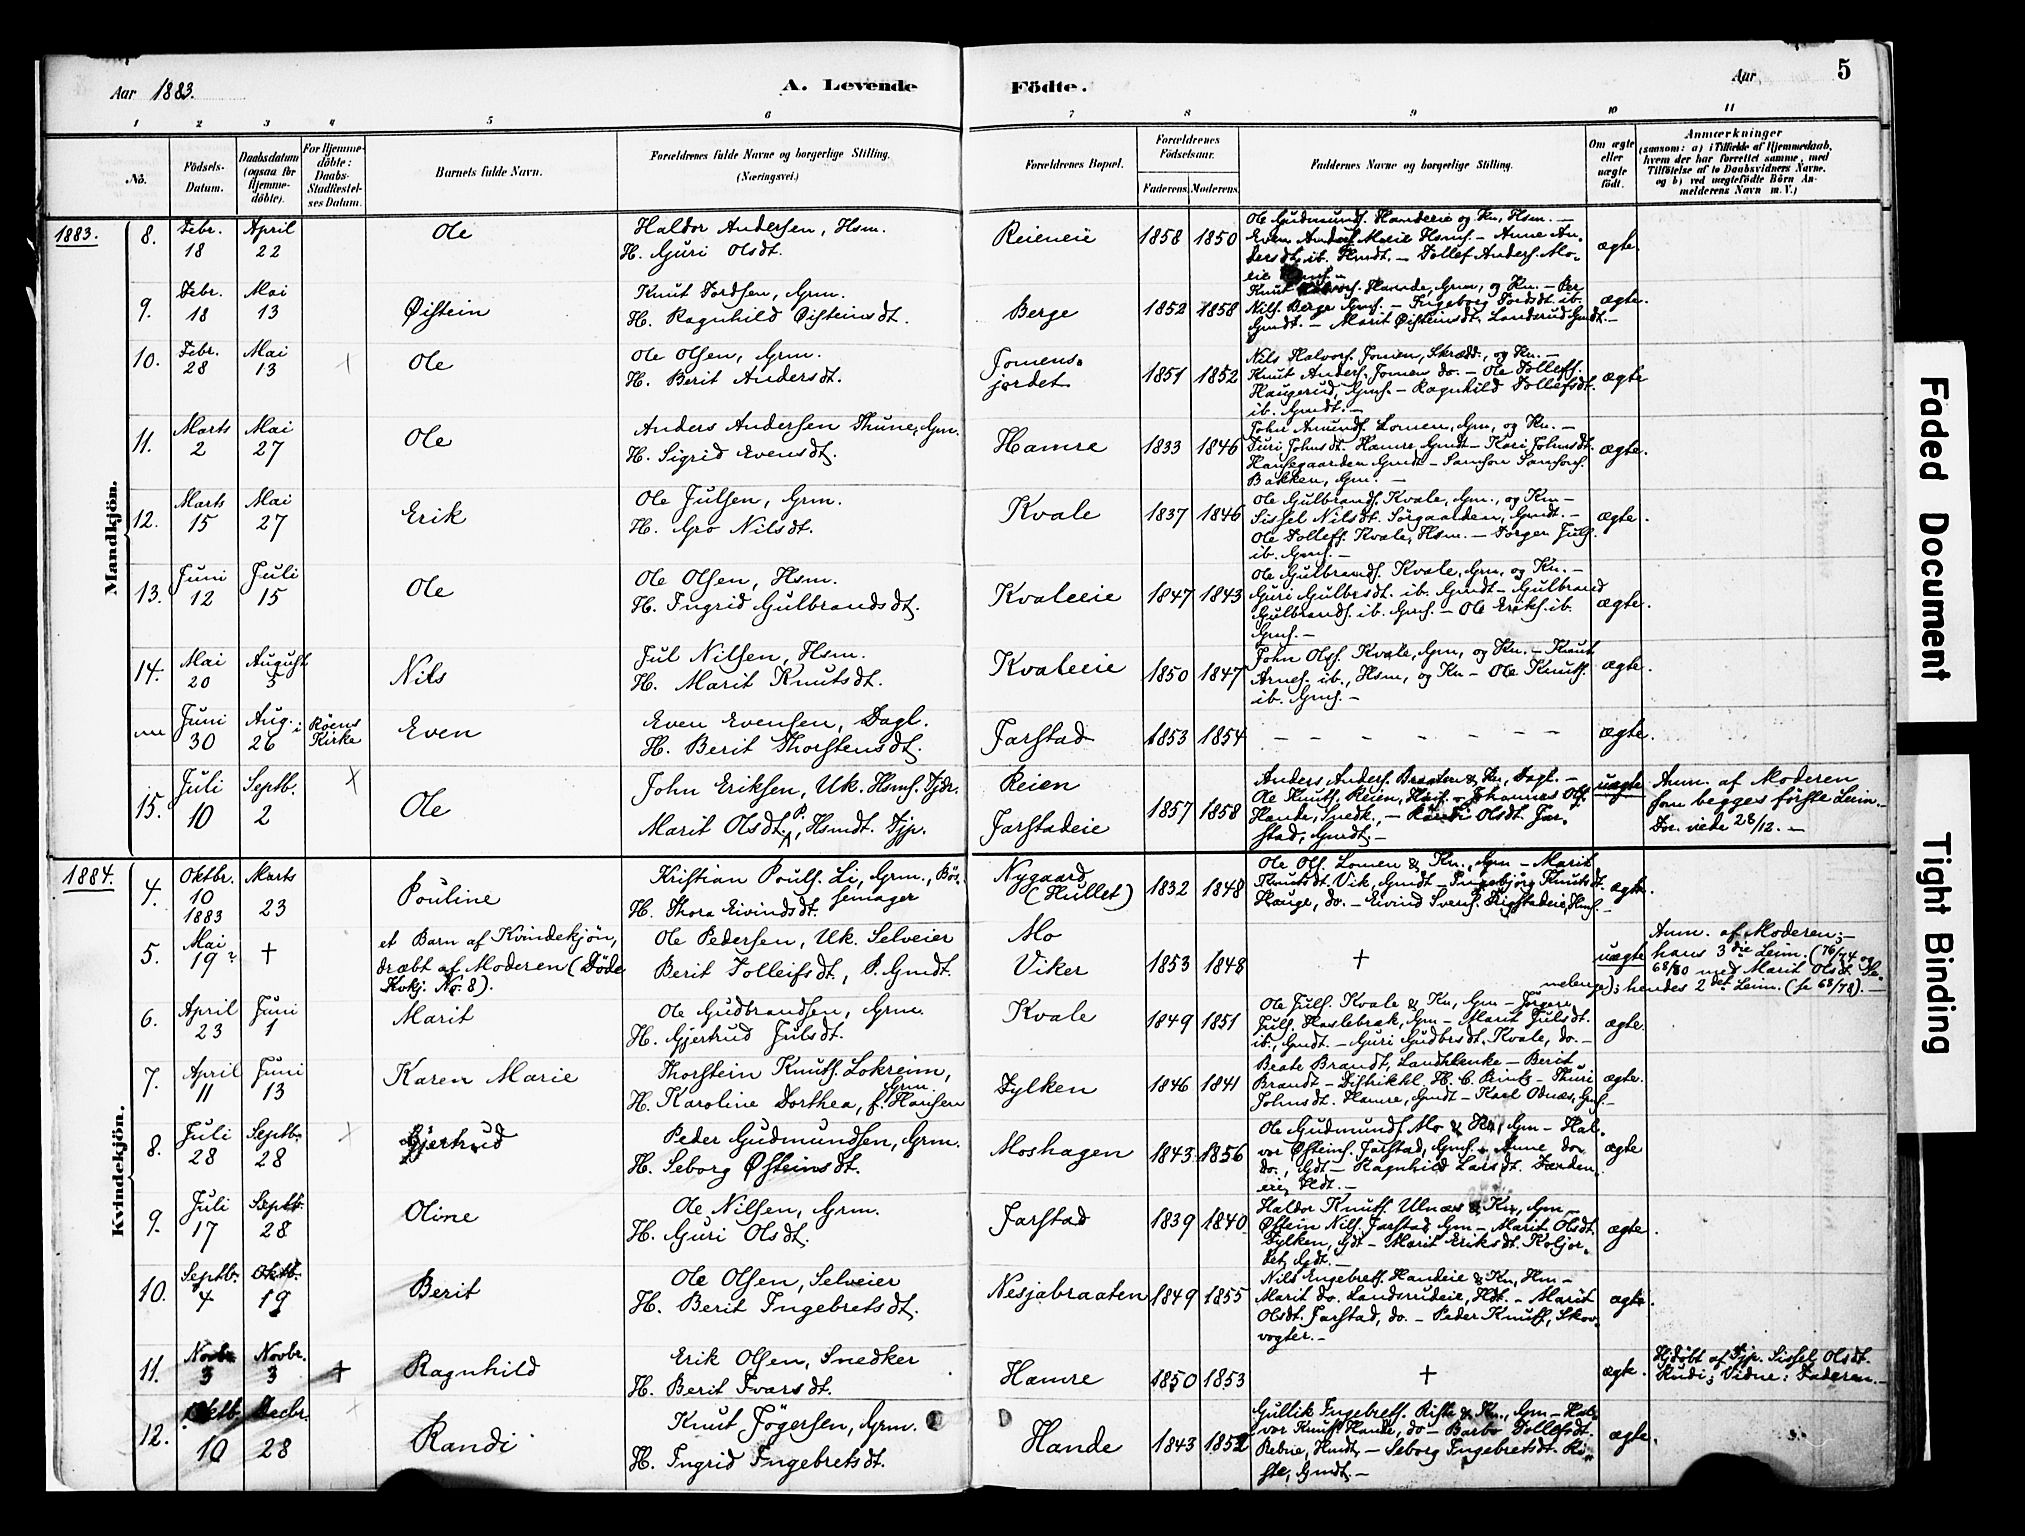 Aar 1883.
A. Levende Födte.
Aar
5
1 2 3 4 5 6 7 8 9 10 11
No.
Födsels-Datum.
Daabsdatum (ogsaa for Hjemme-döbte).
For Hjemme-döbte: Daabs-Stadfæstel-ses Datum.
Barnets fulde Navn.
Forældrenes fulde Navne og borgerlige Stilling. (Næringsvei.)
Forældrenes Bopæl.
Forældrenes Födselsaar.
Faderens. Moderens.
Faddernes Navne og borgerlige Stilling.
Om ægte eller uægte födt.
Anmærkninger
(saasom: a) i Tilfælde af Hjemmedaab, hvem der har forrettet samme, med Tilföielse af to Daabsvidners Navne, og b) ved uægtefödte Börn Anmelderens Navn m. V.)
1883.
Mandkjön.
8. Febr. 18 April 22 Ole
Haldor Andersen, Hsm.
H. Guri Olsdt.
Reieneie 1858 1850
Ole Gudmunds. Handeeie og Kn, Hsm. –
Even Anders. Moeie Hsms. – Anne An-
dersdt. ib. Hmdt. – Tollef Anders. Mo-
eie
ægte.
9. Febr. 18 Mai 13 Øistein
Knut Tordsen, Grm.
H. Ragnhild Øisteinsdt.
Berge 1852 1858
Knut Hande, Grm, og Kn. – Per
Nils. Berge Gms. – Ingeborg Tordsdt. ib.
Gmdt. – Marit Øisteinsdt. Landerud Gmdt. –
ægte.
10. Febr. 28 Mai 13 × Ole
Ole Olsen, Grm.
H. Berit Andersdt.
Jomens-
jordet 1851 1852
Nils Halvors. Jomen, Skrædd., og Kn. –
Knut Anders. Jomens do. – Ole Tollefs.
Haugerud, Gms. – Ragnhild Tollefsdt.
ib. Gmdt. –
ægte
11. Marts 2 Mai 27 Ole
Anders Andersen Thune, Grm.
H. Sigrid Evensdt.
Hamre 1833 1846
John Amunds. Lomen, Gm, og Kn. –
Turi Johnsdt. Hamre Gmdt – Kari Johnsdt.
Haugsgaarden Gmdt – Samson Samsons.
Bakken, Gm. –
ægte.
12. Marts 15 Mai 27 Erik
Ole Julsen, Grm.
H. Gro Nilsdt.
Kvale 1837 1846
Ole Gulbrands. Kvale, Gm., og Kn –
Sissel Nilsdt. Sørgaarden, Gmdt. –
Ole Tollefs. Kvale, Hsm. – Jørgen Juls.
ib. Gms. –
ægte.
13. Juni 12 Juli 15 Ole
Ole Olsen, Hsm.
H. Ingrid Gulbrandsdt.
Kvaleeie 1847 1843
Ole Gulbrands. Kvale, Gm, og Kn. –
Guri Gulbrsdt. ib. Gmdt – Gulbrand
Gulbrands. ib. Gms. – Ole Eriks. ib.
Gms. –
ægte.
14. Mai 20 August 5 Nils
Jul Nilsen, Hsm.
H. Marit Knutsdt.
Kvaleeie 1850 1847
John Ols. Kvale, Gm, og Kn. – Knut
Arnes. ib., Hsm, og Kn – Ole Knuts.
ib. Gms. –
ægte.
Juni 30 Aug. 26 i Røens Kirke Even
Even Evensen, Dagl.
H. Berit Thorstensdt.
Jarstad 1853 1854
– – – – – – – –
ægte.
15. Juli 10 Septb. 2 × Ole
John Eriksen, Uk. Hsms. Tjdr.
Marit Olsdt. P. Hsmdt. Tjp.
Reien
Jarstadeie 1857 1858
Anders Anders. Braaten & Kn, Dagl. –
Ole Knuts. Reien, – Johannes Ols.
Hande, Snedk., – Randi Olsdt. Jar-
stad, Gmdt. –
uægte
Anm. af Moderen
som begges første Leim.
Dov. viede 28/12. –
1884.
Kvindekjön.
4. Oktbr. 10 1883 Marts 23 Pouline
Kristian Pouls. Li, Grm., Bøs-
semager
H. Thora Eivindsdt.
Nygaard
(Hullet) 1832 1848
Ole Ols. Lomen & Kn., Gm – Marit
Knutsdt. Vik, Gmdt – Ingebjørg Knutsdt.
Hauge, do. – Eivind Svens.
ægte.
5. Mai 19? +
et Barn af Kvindekjøn,
dræbt af Moderen (Døde
Kvkj. No. 8).
Ole Pedersen, Uk. Selveier
Berit Tolleifsdt, P. Gmdt.
Mo
Viker 1853 1848
+
uægte
Anm. af Moderen; –
hans 3die Leim. (76/74 og
68/80 med Marit Olsdt.
hendes 2det Leim. (se 68/78). –
6. April 23 Juni 1 Marit
Ole Gudbrandsen, Grm.
H. Gjertrud Julsdt.
Kvale 1849 1851
Ole Juls. Kvale & Kn, Gm – Jørgen
Juls. Haslebrak, Gm – Marit Julsdt.
ib., Gmdt. – Guri Gudbrsdt. Kvale, do. –
ægte.
7. April 11 Juni 13 Karen Marie
Thorstein Knuts. Lokreim,
Grm.
H. Karoline Dorthea, f. Hansen
Fylken 1846 1841
Beate Brandt, Landhkenke – Berit
Brandt – Distriktsl. H. C. Printz – Thuri
Johnsdt. Hamre, Gmdt – Karl Odnæs, Gms. –
ægte.
8. Juli 28 Septb. 28 × Gjertrud
Peder Gudmundsen, Grm.
H. Seborg Østeinsdt.
Moshagen 1843 1856
Ole Gudmunds. Mo & Kn, Gm – Hal-
vor Østeins. Jarstad, Gms. – Anne do
do., Gdt – Ragnhild Larsdt.
eie, Hdt. –
ægte
9. Juli 17 Septb. 28 Oline
Ole Nilsen, Grm.
H. Guri Olsdt.
Jarstad 1839 1840
Haldor Knuts. Ulnæs & Kn, Gm –
Østein Nils. Jarstad Gm – Marit Olsdt.
Fylken, Gdt – Marit Eriksdt. Koljor-
det, Gdt. –
ægte.
10. Septb. 4 Oktb. 19 Berit
Ole Olsen, Selveier
H. Berit Ingebretsdt.
Nesjabraaten 1849 1855
Nils Engebrets. Handeie & Kn, Hm –
Marit do. Landerudeie, Hdt. – Marit
Olsdt. Jarstad, do. – Peder Knuts, Skov-
vogter. –
ægte.
11. Novbr. 3 Novbr. 3 + Ragnhild
Erik Olsen, Snedker
H. Berit Ivarsdt.
Hamre 1850 1853
+
ægte.
Hjdøbt af Tjp. Sissel Olsdt.
Rudi; Vidne: Faderen. –
12. Oktb. 10 Decbr. 28 Randi
Knut Jögersen, Grm.
H. Ingrid Ingebretsdt.
Hande 1843 1852
Gullik Ingebrets. Riste & Kn., Gm – Hal-
vor Knuts. Hande, do – Barbo Tollefsdt.
Rebne, Hmdt, – Seborg Ingebretsdt. Ri-
ste, Gmdt. –
ægte.
Faded Document
Tight Binding